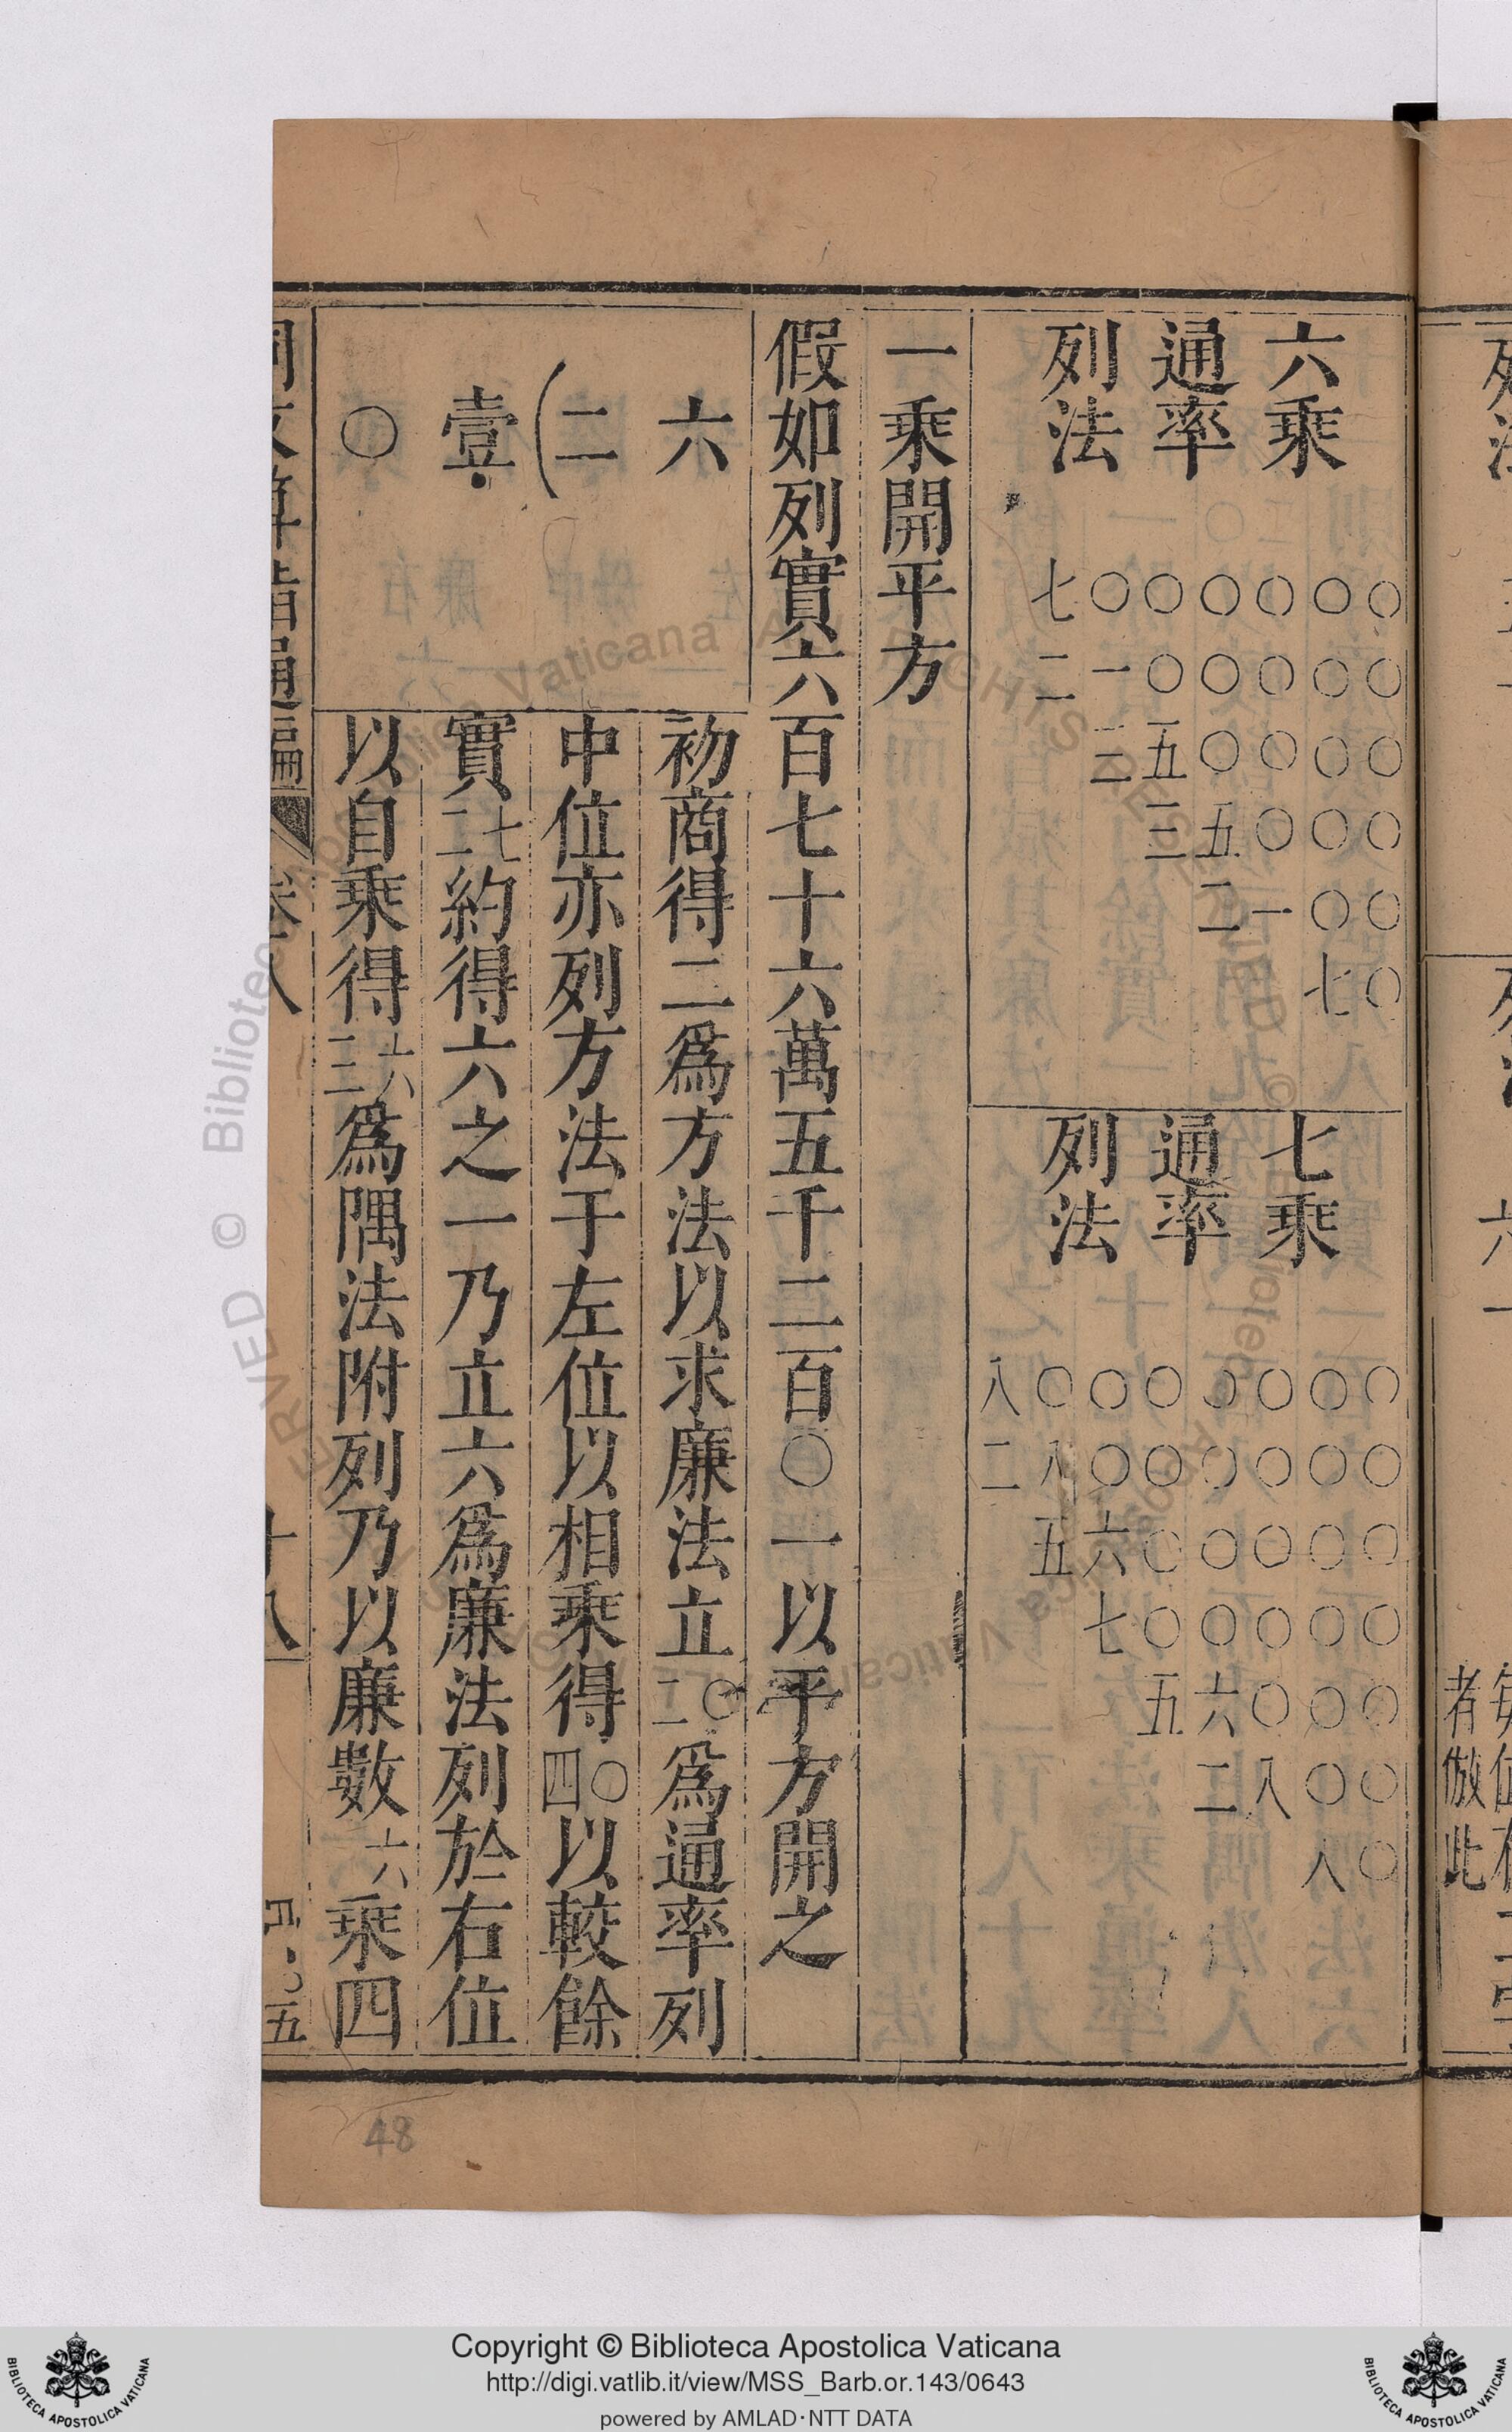 者倣此
六乘
通率
列法
七○○○○○○
二一○○○○○
三五○○○○
三五○○○
二一○○
七○
七乘
通率
列法
八○○○○○○○
二八○○○○○○
五六○○○○○
七○○○○○
五六○○○
二八○○
八○
一乘開平方
假如列實六百七十六萬五千二百○一以平方開之
六
(二
壹
○
初商得二爲方法以求廉法立二○爲通率列
中位亦列方法于左位以相乘得四○以較餘
實二七約得六之一乃立六爲廉法列於右位
以自乘得三六爲隅法附列乃以廉數六乘四
同文算指通編 卷八 十八
48
© Biblioteca Apostolica Vaticana
Copyright © Biblioteca Apostolica Vaticana
http://digi.vatlib.it/view/MSS_Barb.or.143/0643
powered by AMLAD·NTT DATA
BIBLIOTECA APOSTOLICA VATICANA
BIBLIOTECA APOSTOLICA VATICANA